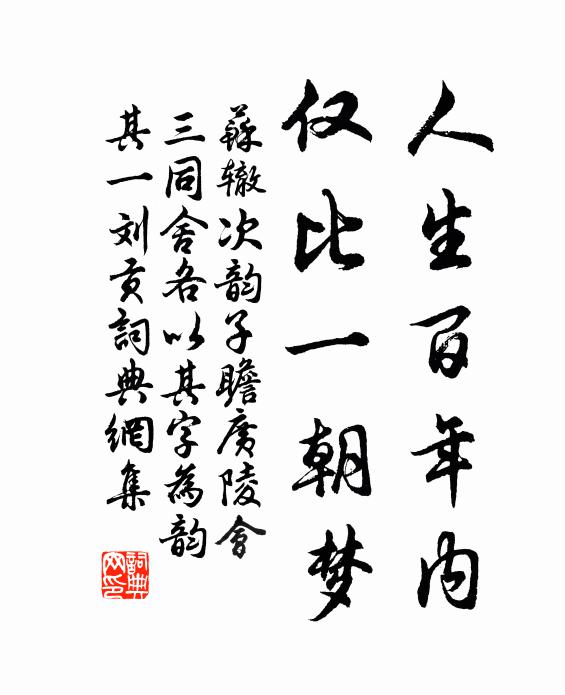 人生百年内
仅比一朝梦
蘇辙次韵子瞻廣陵會
三同舍各以其字為韵
其一刘贡詞典網集
詞典
网印